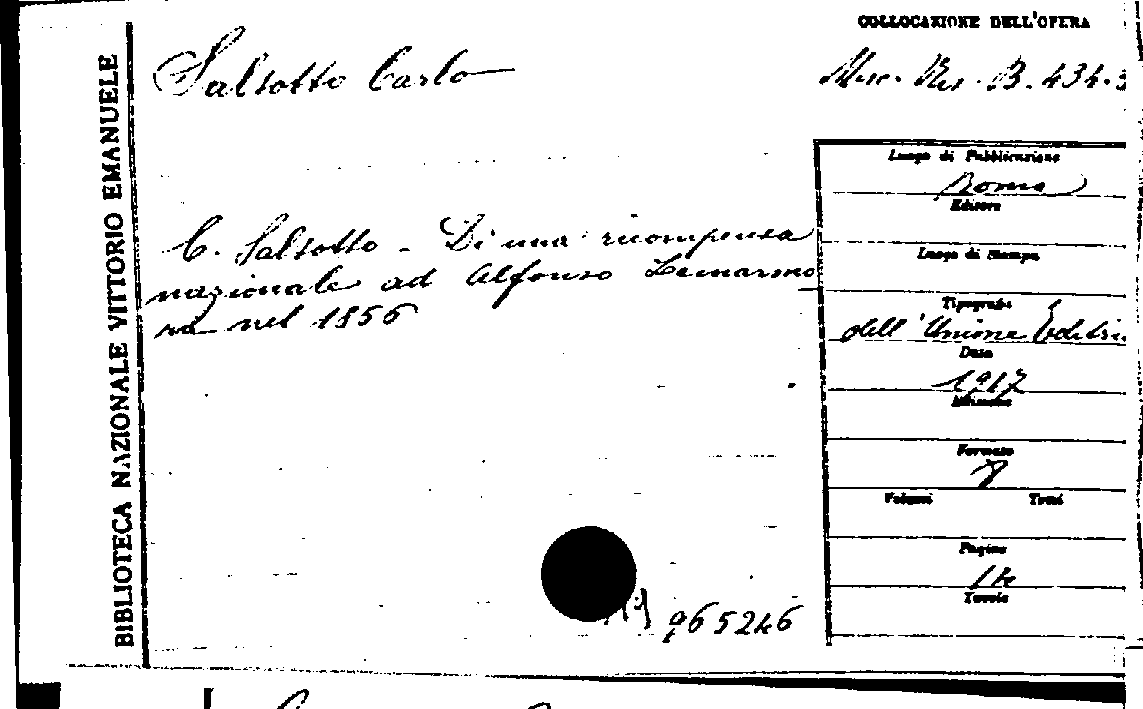 BIBLIOTECA NAZIONALE VITTORIO EMANUELE
COLLOCAZIONE DELL'OPERA
Salsotto Carlo
Misc. Ris. B. 434.3
Luogo di Pubblicazione
Roma
Editore
C. Salsotto - Di una ricompensa
nazionale ad Alfonso Lamarmo
ra nel 1856
Luogo di Stampa
Tipografia
dell'Unione Editri
Data
1917
Edizione
Formato
8
Volumi Tomi
Pagine
14
Tavole
965246